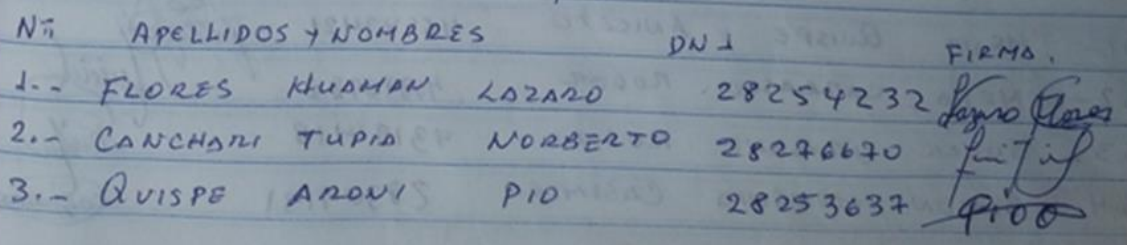 Nº APELLIDOS Y NOMBRES DNI FIRMA.
1.- FLORES HUAMAN LAZARO 28254232 Lazaro Flores
2.- CANCHARI TUPIA NORBERTO 28276670
3.- QUISPE ARONI PIO 28253637 PIO